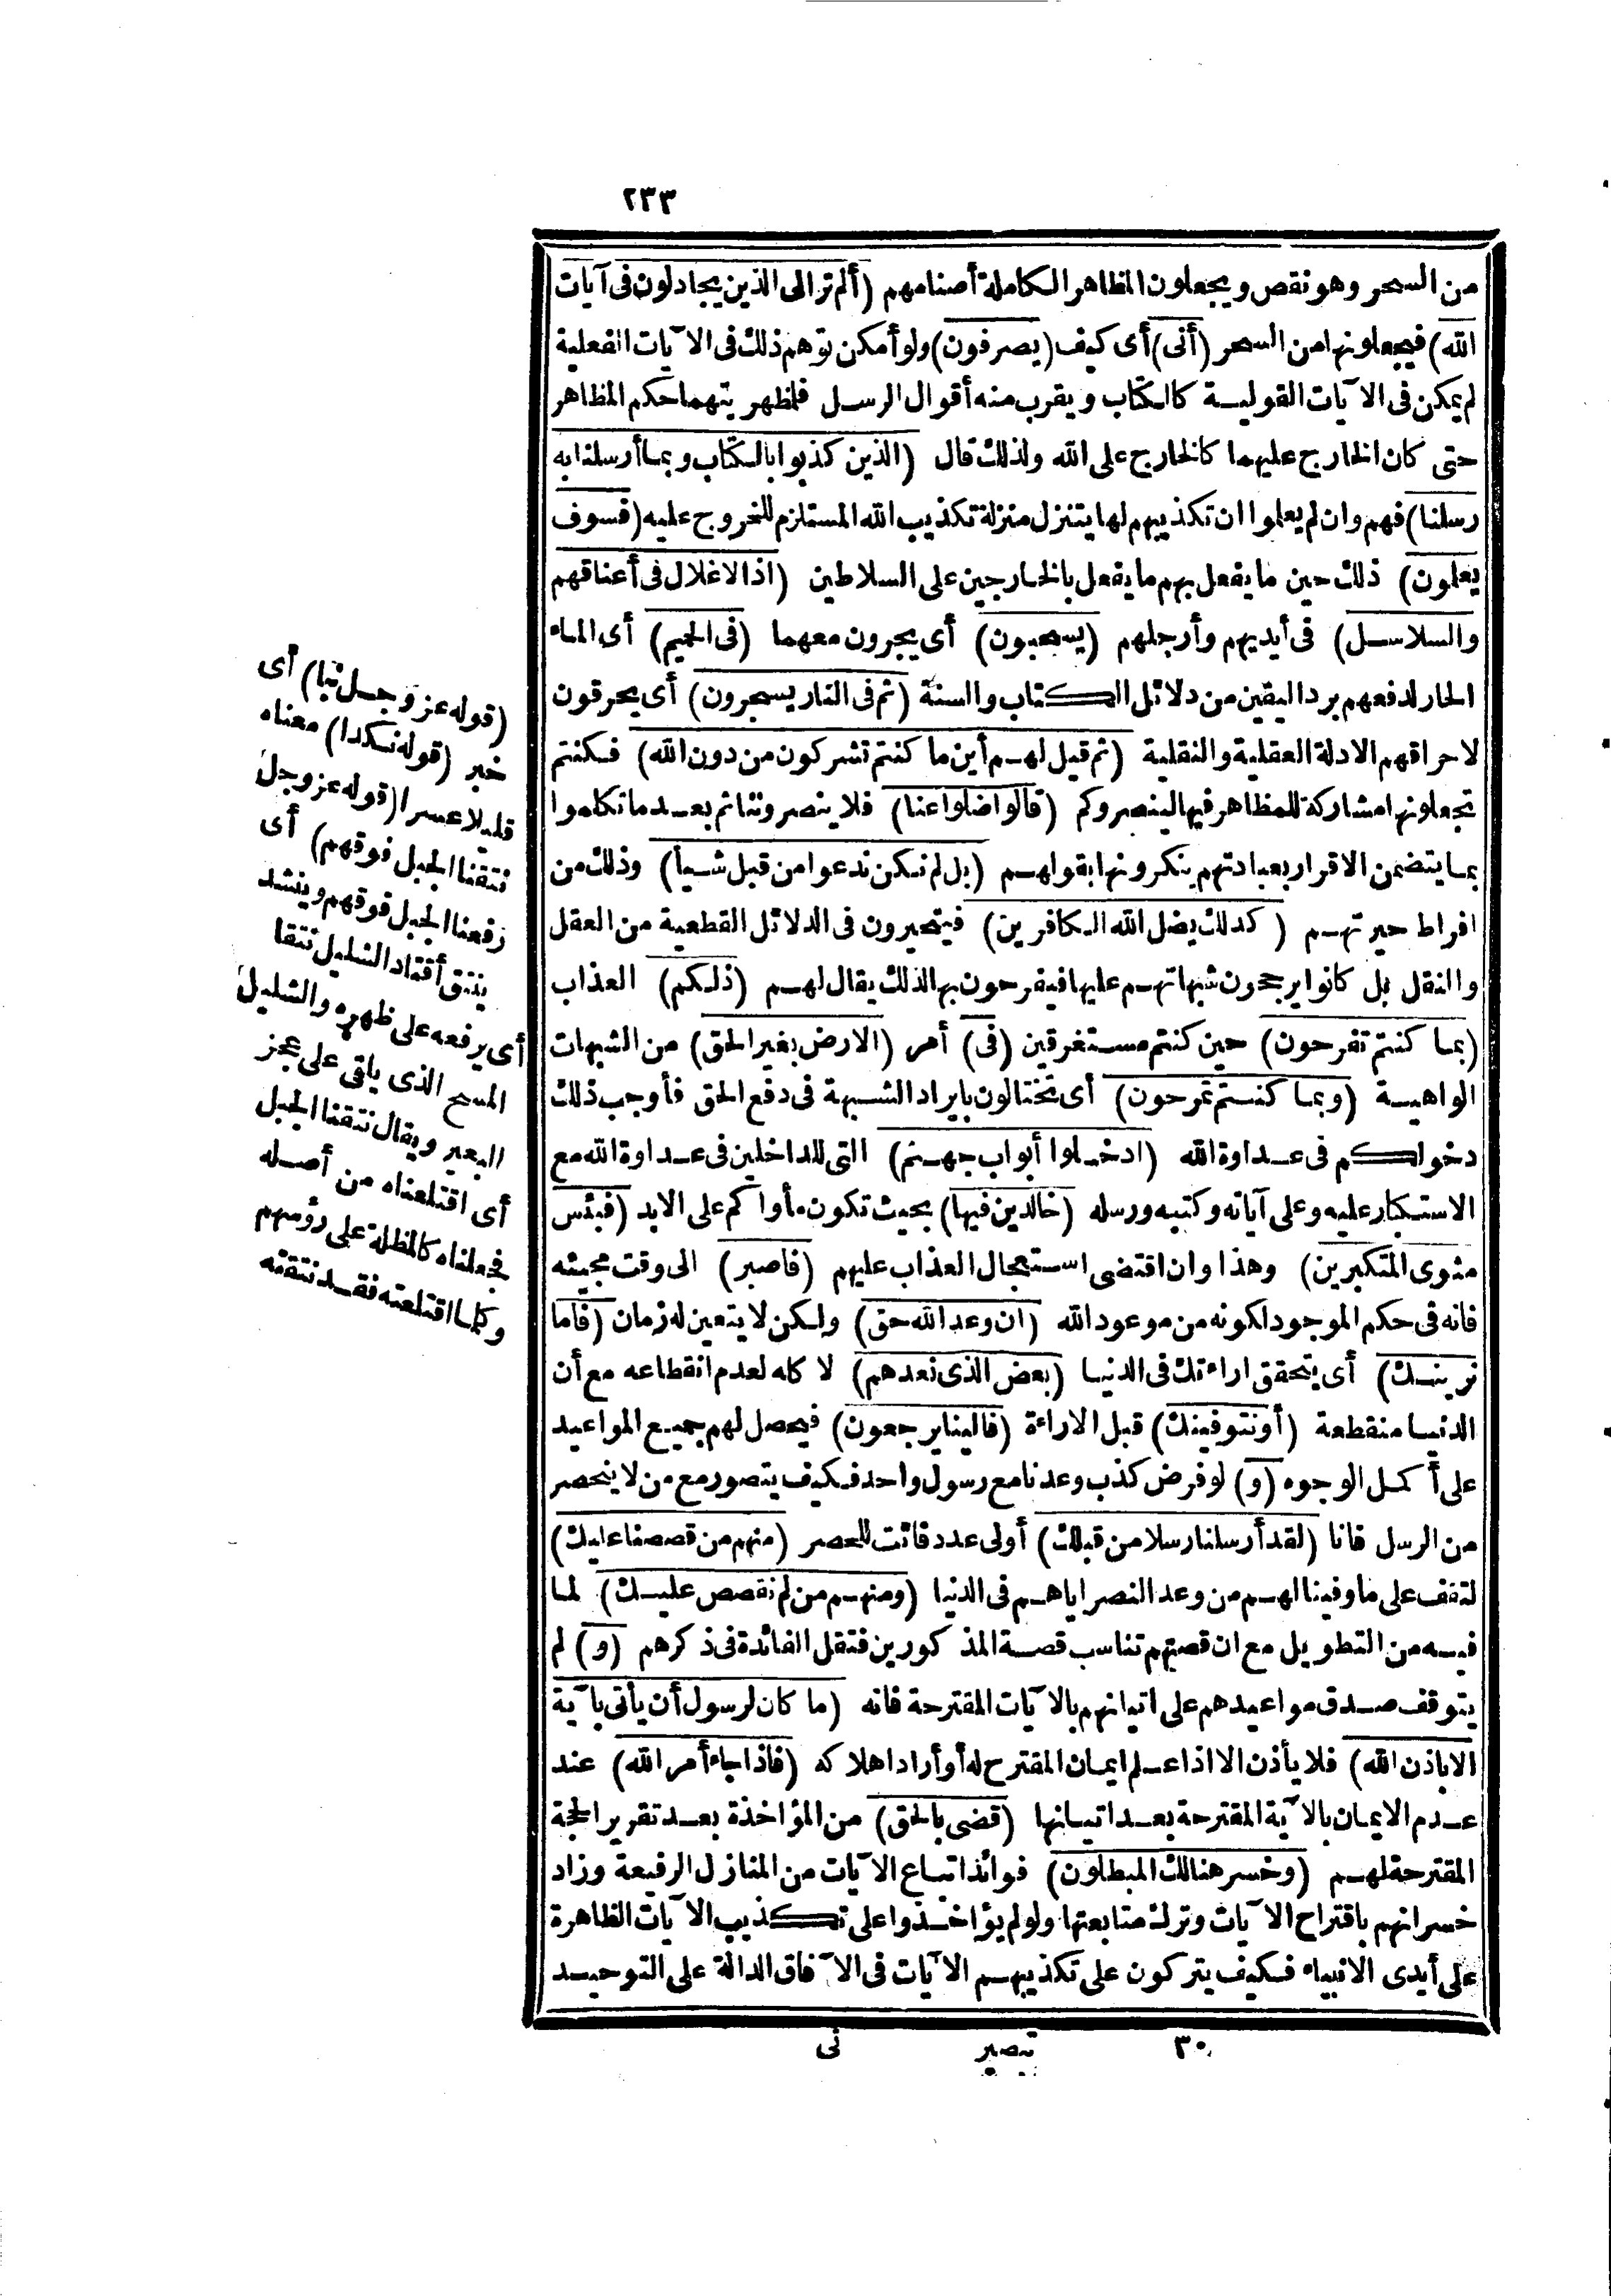 ٢٣٣
من السحر وهو نقص ويجعلون المظاهر الكاملة أصنامهم (ألم تر الى الذين يجادلون فى آيات
الله) فيجعلونها من السحر (أنى) أى كيف (يصرفون) ولو أمكن توهم ذلك فى الآيات الفعلية
لم يمكن فى الآيات القولية كالكتاب ويقرب منه أقوال الرسل فلمظهريتهما حكم المظاهر
حتى كان الخارج عليهما كالخارج على الله ولذلك قال (الذين كذبوا بالكتاب وبما أرسلنا به
رسلنا) فهم وان لم يعلموا ان تكذيبهم لها يتنزل منزلة تكذيب الله المستلزم للخروج عليه (فسوف
يعلمون) ذلك حين ما يفعل بهم ما يفعل بالخارجين على السلاطين (اذ الاغلال فى أعناقهم
والسلاسل) فى أيديهم وأرجلهم (يسحبون) أى يجرون معهما (فى الحميم) أى الماء
الحار لدفعهم برد اليقين من دلائل الكتاب والسنة (ثم فى النار يسجرون) أى يحرقون
لاحراقهم الادلة العقلية والنقلية (ثم قيل لهم أين ما كنتم تشركون من دون الله) فكنتم
تجعلونها مشاركة للمظاهر فيها لينصروكم (قالوا ضلوا عنا) فلا ينصروننا ثم بعد ما تكلموا
بما يتضمن الاقرار بعبادتهم ينكرونها بقولهم (بل لم نكن ندعوا من قبل شيأ) وذلك من
افراط حيرتهم (كذلك يضل الله الكافرين) فيتحيرون فى الدلائل القطعية من العقل
والنقل بل كانوا يرجحون شبهاتهم عليها فيفرحون بها لذلك يقال لهم (ذلكم) العذاب
(بما كنتم تفرحون) حين كنتم مستغرقين (فى) أمر (الارض بغير الحق) من الشبهات
الواهية (وبما كنتم تمرحون) أى تختالون بايراد الشبهة فى دفع الحق فأوجب ذلك
دخولكم فى عداوة الله (ادخلوا أبواب جهنم) التى للداخلين فى عداوة الله مع
الاستكبار عليه وعلى آياته وكتبه ورسله (خالدين فيها) بحيث تكون مأواكم على الابد (فبئس
مثوى المتكبرين) وهذا وان اقتضى استعجال العذاب عليهم (فاصبر) الى وقت مجيئه
فانه فى حكم الموجود لكونه من موعود الله (ان وعد الله حق) ولكن لا يتعين له زمان (فاما
نرينك) أى يتحقق اراءتك فى الدنيا (بعض الذى نعدهم) لا كله لعدم انقطاعه مع أن
الدنيا منقطعة (أو نتوفينك) قبل الاراءة (فالينا يرجعون) فيحصل لهم جميع المواعيد
على أكمل الوجوه (و) لو فرض كذب وعدنا مع رسول واحد فكيف يتصور مع من لا ينحصر
من الرسل فانا (لقد أرسلنا رسلا من قبلك) أولى عدد فائت للحصر (منهم من قصصنا عليك)
لتقف على ما وفينا لهم من وعد النصر اياهم فى الدنيا (ومنهم من لم نقصص عليك) لما
فيه من التطويل مع ان قصتهم تناسب قصة المذكورين فتقل الفائدة فى ذكرهم (و) لم
يتوقف صدق مواعيدهم على اتيانهم بالآيات المقترحة فانه (ما كان لرسول أن يأتى بآية
الا باذن الله) فلا يأذن الا اذا علم ايمان المقترح له أو أراد اهلاكه (فاذا جاء أمر الله) عند
عدم الايمان بالآية المقترحة بعد اتيانها (قضى بالحق) من المؤاخذة بعد تقرير الحجة
المقترحة لهم (وخسر هنالك المبطلون) فوائد اتباع الآيات من المنازل الرفيعة وزاد
خسرانهم باقتراح الآيات وترك متابعتها ولو لم يؤاخذوا على تكذيب الآيات الظاهرة
على أيدى الانبياء فكيف يتركون على تكذيبهم الآيات فى الآفاق الدالة على التوحيد
(قوله عز وجل نبا) أى
خبر (قوله نكدا) معناه
قليلا عسرا (قوله عز وجل
نتقنا الجبل فوقهم) أى
رفعنا الجبل فوقهم وينشد
ينتق أقتاد الشليل نتقا
أى يرفعه على ظهره والشليل
المسح الذى يلقى على عجز
البعير ويقال نتقنا الجبل
أى اقتلعناه من أصله
فجعلناه كالمظلة على رؤسهم
وكل ما اقتلعته فقد نتقته
٣٠ تبصير نى